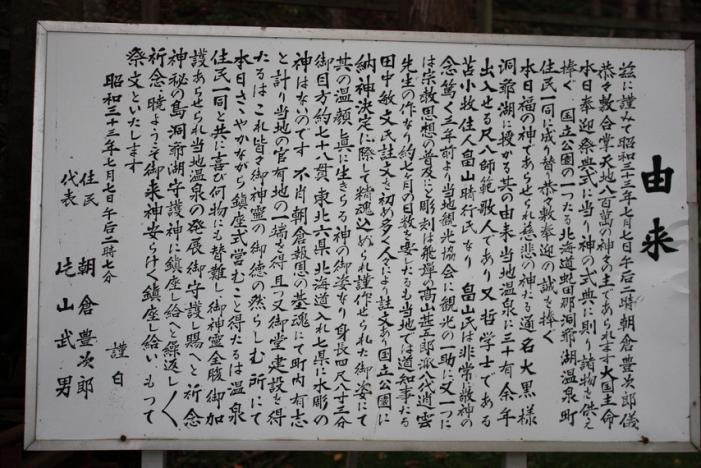 由来
茲に謹みて昭和三十三年七月七日午后二時朝倉豊次郎儀
恭々敷合掌天地八百萬の神々の主であられます大国主命
本日奉迎祭典式に当り神の式典に則り諸物を供え
捧ぐ 国立公園の一つたる北海道虻田郡洞爺湖温泉町
住民一同に成り替り恭々敷奉迎の誠を捧く
本日福の神であらせられ慈悲の神たる通名大黒様
洞爺湖に授かる其の由来 当地温泉に三十有余年
出入せる尺八師範歌人であり又哲学士である
苫小牧住人畠山晴行氏なり 畠山氏は非常に敬神の
念篤く三年前より当地観光協会に観光の一助に又一つに
は宗教思想の普及にと彫刻は飛騨の高山甚五郎派八代道雲
先生の作なり約七月の日数を要したるも当地では道知事たる
田中敏文氏註文を初め多く人々により註文あり国立公園に
納神決定に際して精魂込められ謹作せられた御姿にて
其の温顔は真に生きらる神の御姿なり身長四尺八寸三分
御目方約七十八貫 東北六県北海道入れ七県に水彫の
神はないのです 不肖朝倉報恩の基魂にて町内有志
と計り当地の官有地の一端を得且つ又御堂建設を得
たるはこれ皆々御神霊の御徳の然らしむ所にて
本日さゝやかながら鎮座式営むこと得たるは温泉
住民一同と共に喜び何物にも替難し御神霊全腹御加
護あらせられ当地温泉の発展御守護し賜へと祈念
神秘の島洞爺湖守護神に鎮座し給へと繰返し〱
祈念し暁ようぞ御来神安らけく鎮座し給い もって
祭文といたします
昭和三十三年七月七日午后二時七分
謹白
住民 朝倉豊次郎
代表 山武男